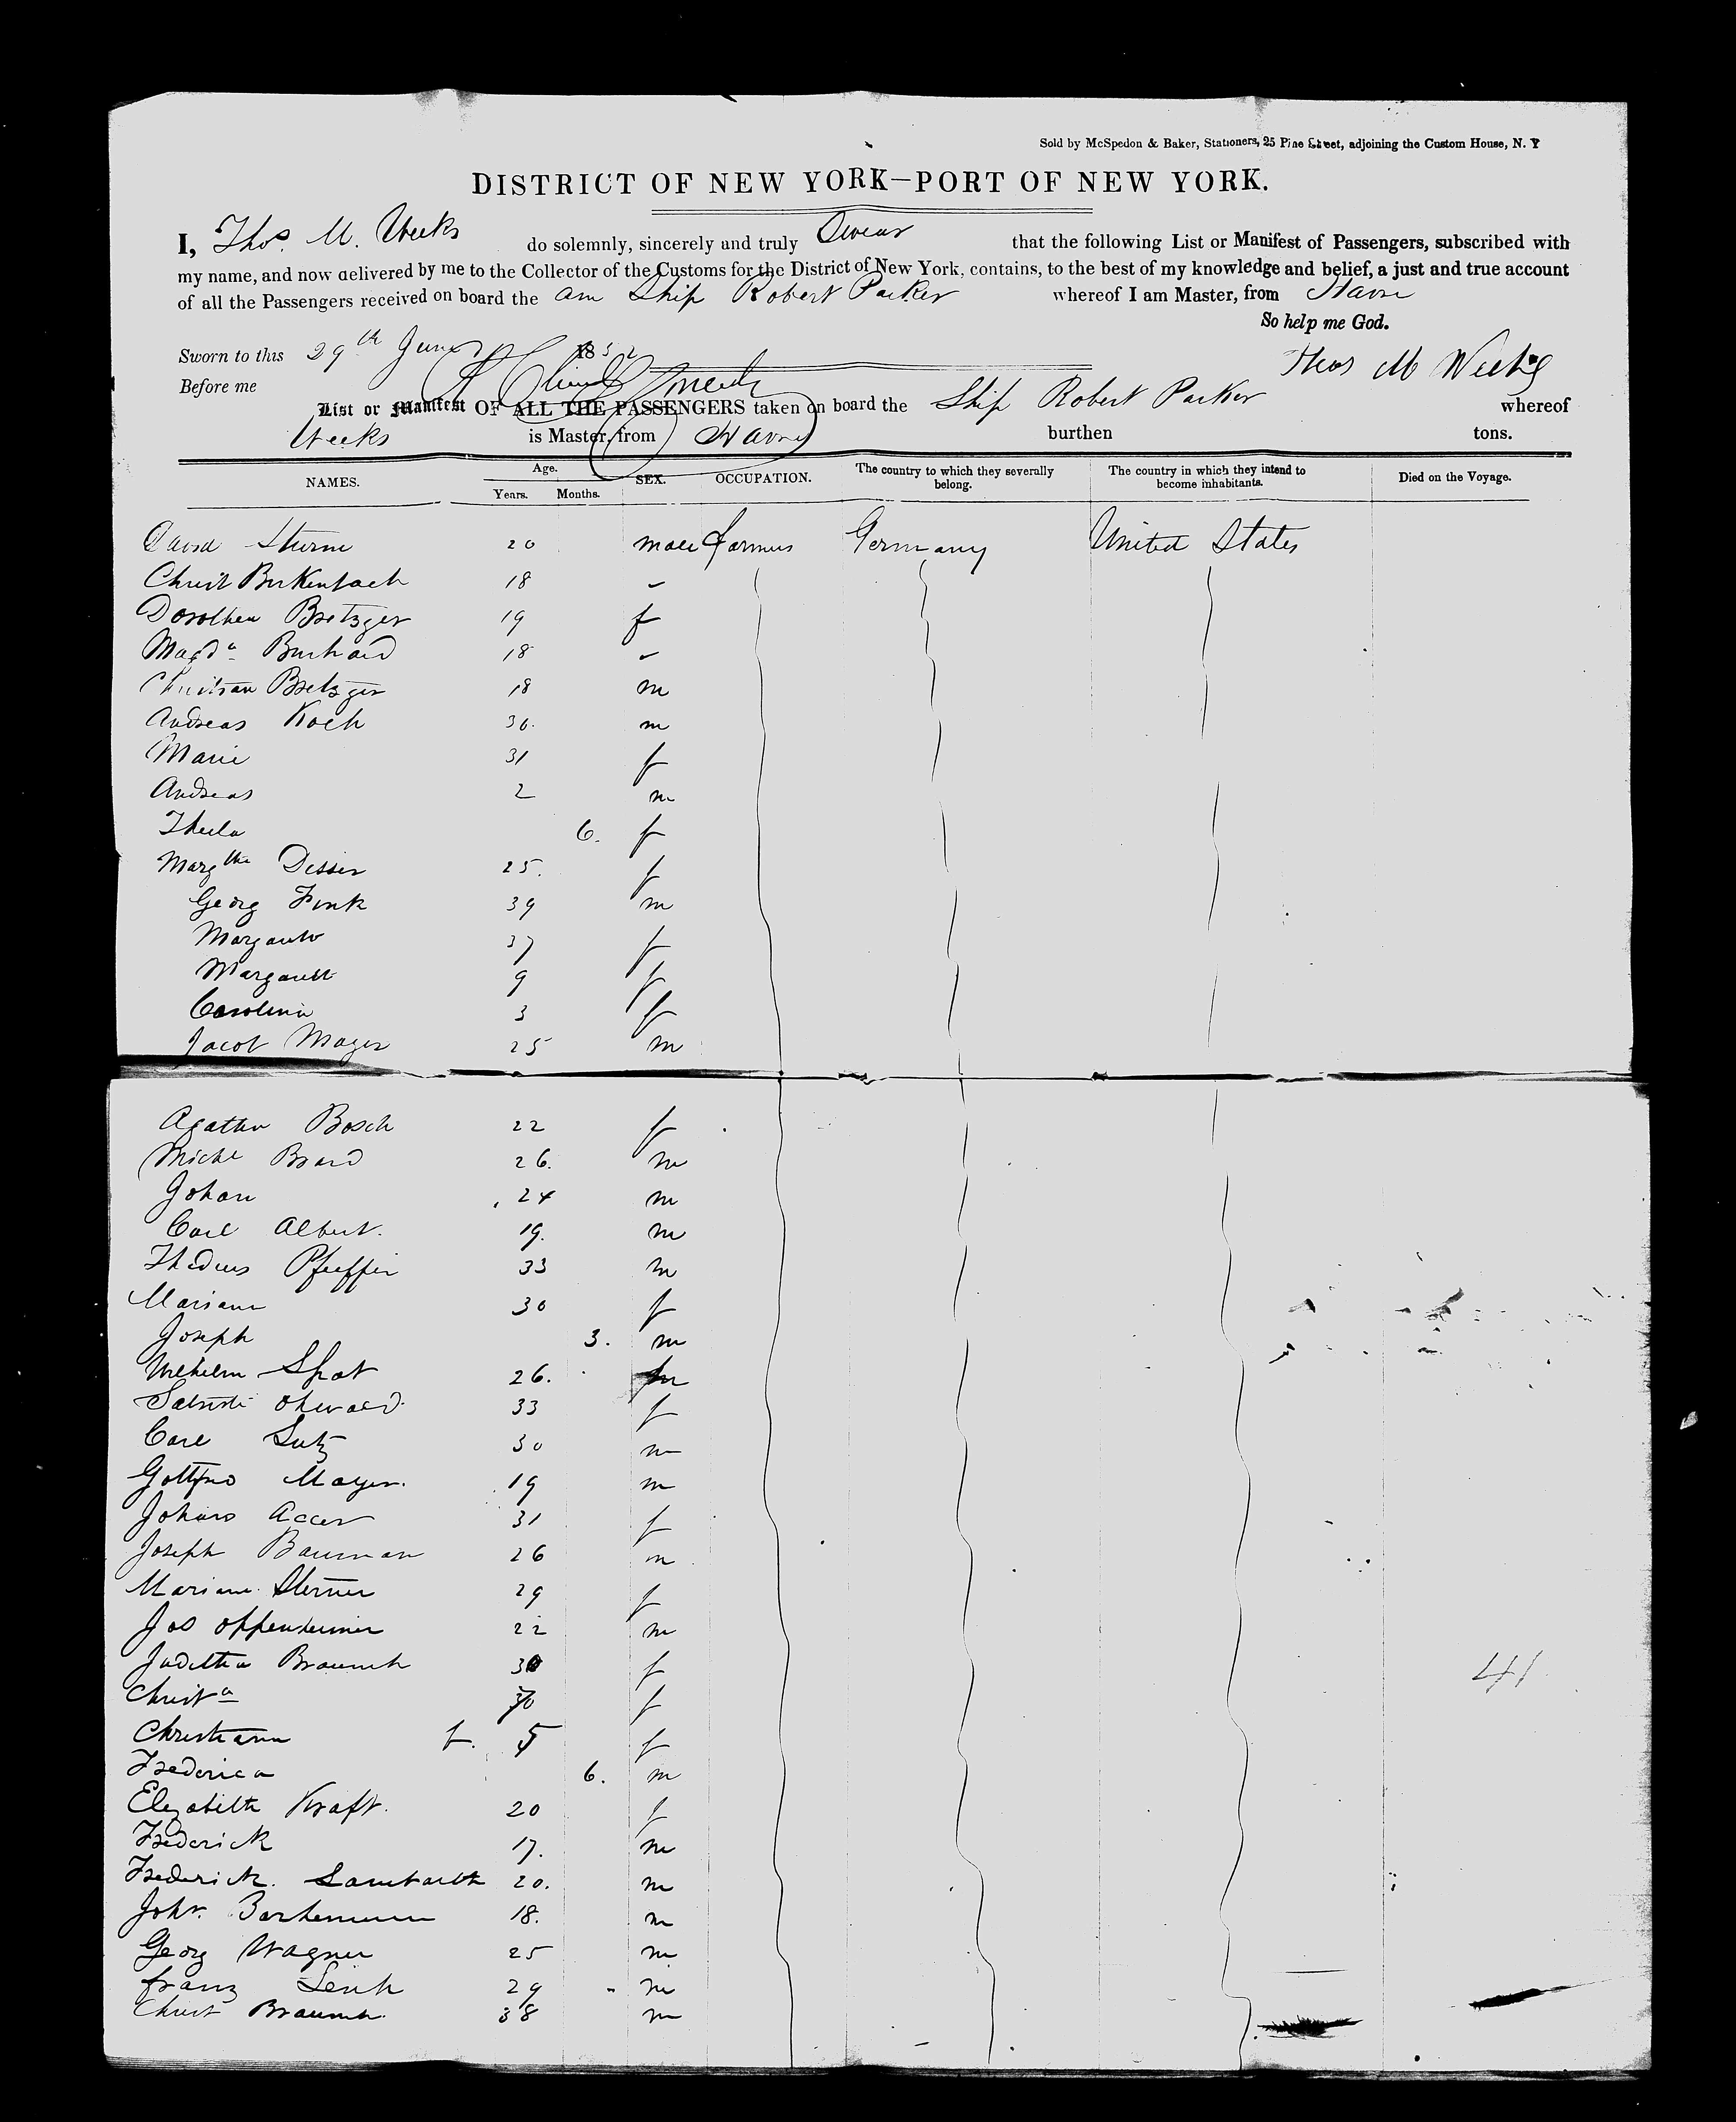 Sold by McSpedon & Baker, Stationers, 25 Pine Street, adjoining the Custom House, N. Y
DISTRICT OF NEW YORK—PORT OF NEW YORK.
I, Thos. M. Weeks do solemnly, sincerely and truly Swear that the following List or Manifest of Passengers, subscribed with
my name, and now delivered by me to the Collector of the Customs for the District of New York, contains, to the best of my knowledge and belief, a just and true account
of all the Passengers received on board the am Ship Robert Parker whereof I am Master, from Havre
So help me God.
Sworn to this 29th June 1852
Thos M Weeks
Before me
List or Manifest OF ALL THE PASSENGERS taken on board the Ship Robert Parker whereof
Weeks is Master, from Havre burthen tons.
NAMES. Age. Years. Months. SEX. OCCUPATION. The country to which they severally belong. The country in which they intend to become inhabitants. Died on the Voyage.
David Sturm 20 male farmers Germany United States
Christ 18
Dorothea Bretzger 19 f
Magda 18
Christian Bretzger 18 m
Andreas Koch 30. m
Marie 31 f
Andreas 2 m
Thecla 6. f
Margtha 25. f
Georg Fink 39 m
37 f
9 f
Carolina 3 f
Jacob Mayer 25 m
Agatha Bosch 22 f
Michl 26. m
Johan 24 m
Carl Albert. 19. m
Pfeiffer 33 m
Mariana 30 f
Joseph 3. m
Wilhelm 26. m
33 f
Carl Lutz 30 m
Mayer. 19 m
31 f
Joseph Bauman 26 m
Mariane 29 f
Jos Oppenheimer 22 m
Juditha 30 f
Christa 30 f
Christiana f. 5 f
Frederica 6. m
Elizabeth Kraft. 20 f
Frederick 17. m
Frederick. 20. m
18. m
Georg Wagner 25 m
Franz 29 m
Christ 38 m
41